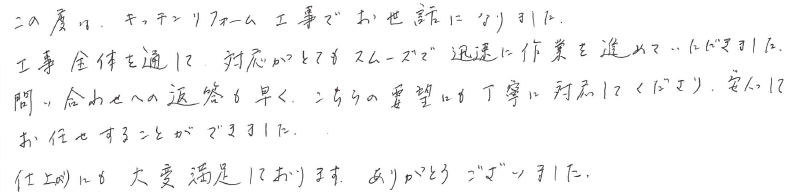 この度は、キッチンリフォーム工事でお世話になりました。
工事全体を通して、対応がとてもスムーズで迅速に作業を進めていただきました。
問い合わせへの返答も早く、こちらの要望にも丁寧に対応してくださり、安心して
お任せすることができました。
仕上がりにも大変満足しております。ありがとうございました。